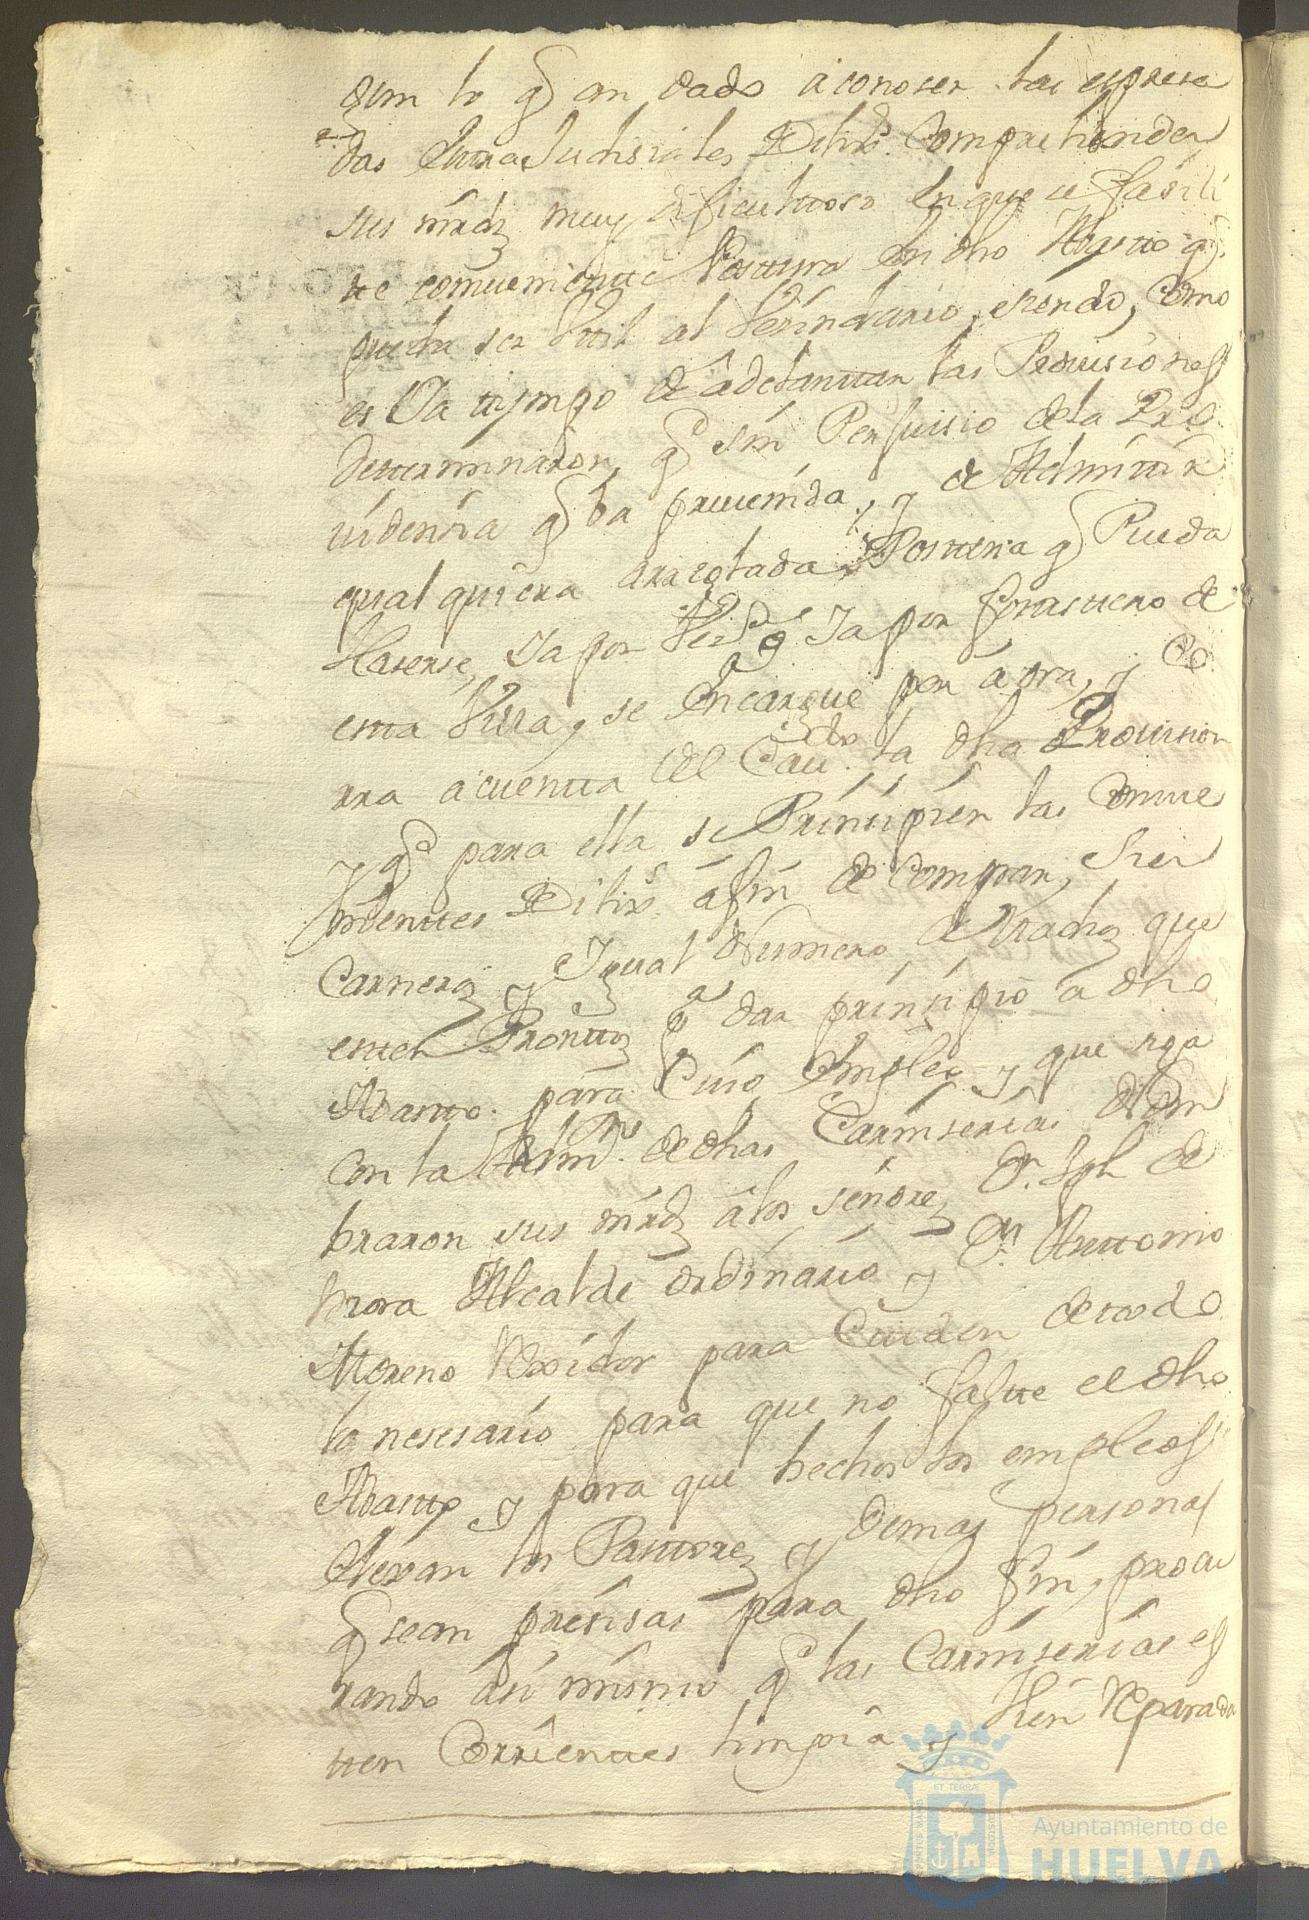 gun lo q̃ an dado a conoser las espresa
das Extra Judisiales Dilixs. Comprehenden
sus mrds muy dificultoso en que se fasili
te comueniente Postura en dho Abasto q̃
pueda ser Vtil al Vesindario, siendo, Como
es Ya tiempo de adelantar las Prouisiones
determinaron, q̃ sin Perjuisio de la Pro
uidensia q̃ ba preuenida, y de Admitir
qualquiera arreglada Postura q̃ Pueda
Haserse, Ya por Vesº. o Ya por forastero de
esta Villa, se Encargue por aora, y Co
rra a cuenta del Caudo. la dha Prouision
y q̃ para ella se Prinsipien las Comue
nientes Dilixs. a fin de Comprar, Sien
Carneros y Ygual Numero de Machos que
esten Promttos pª dar prinsipio a dho
Abasto. para Cuio Empleo y que siga
Con la Admon. de dhas Carniserias Nom
braron sus mrds a los señores Dn. Jph de
Mora Alcalde ordinario y Dn. Anttonio
Moreno Rexidor para Cuiden de todo
lo nesesario para que no falte el dho
Abasto y para que hechos los empleos
elixan los Pastores y demas personas
q̃ sean presisas para dho fin, procu
rando asi mismo q̃ las Carniserias es
ten Corrientes limpia y bien Reparada
ET TERRÆ
Ayuntamiento de
HUELVA